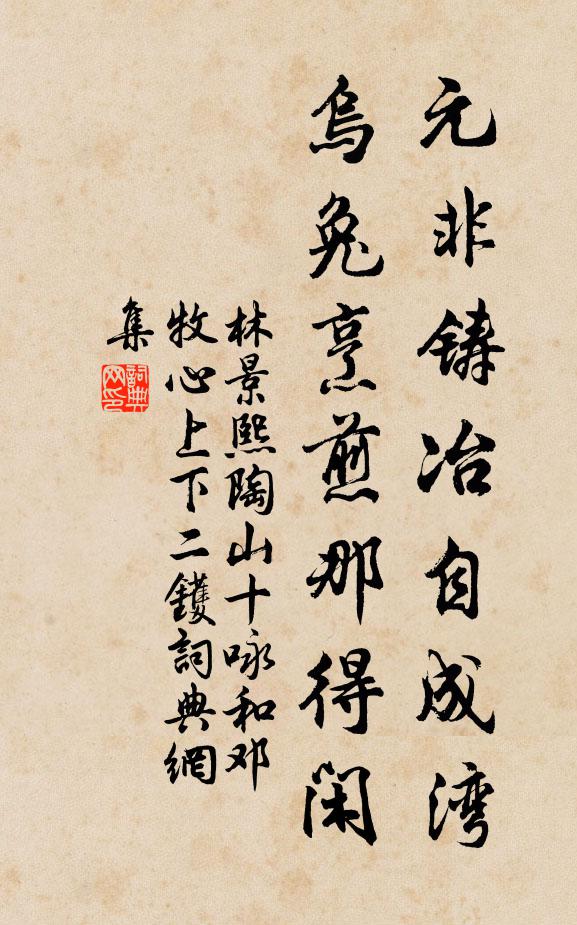 元非铸冶自成湾
乌兔烹煎那得闲
林景熙陶山十咏和邓
牧心上下二鑊詞典網
集
詞典网印